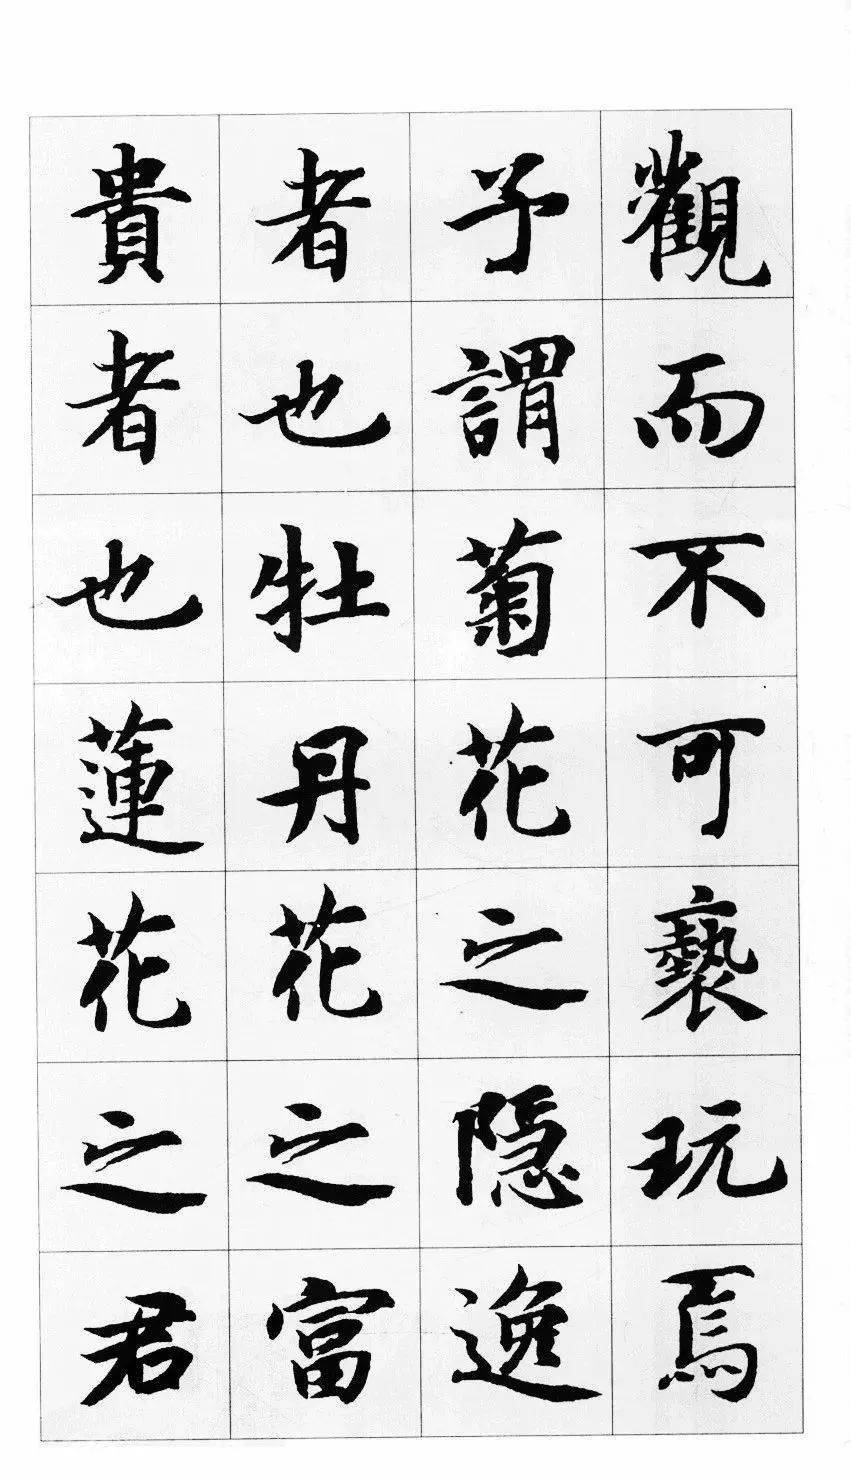 觀而不可褻玩焉
予謂菊花之隐逸
者也牡丹花之富
貴者也蓮花之君